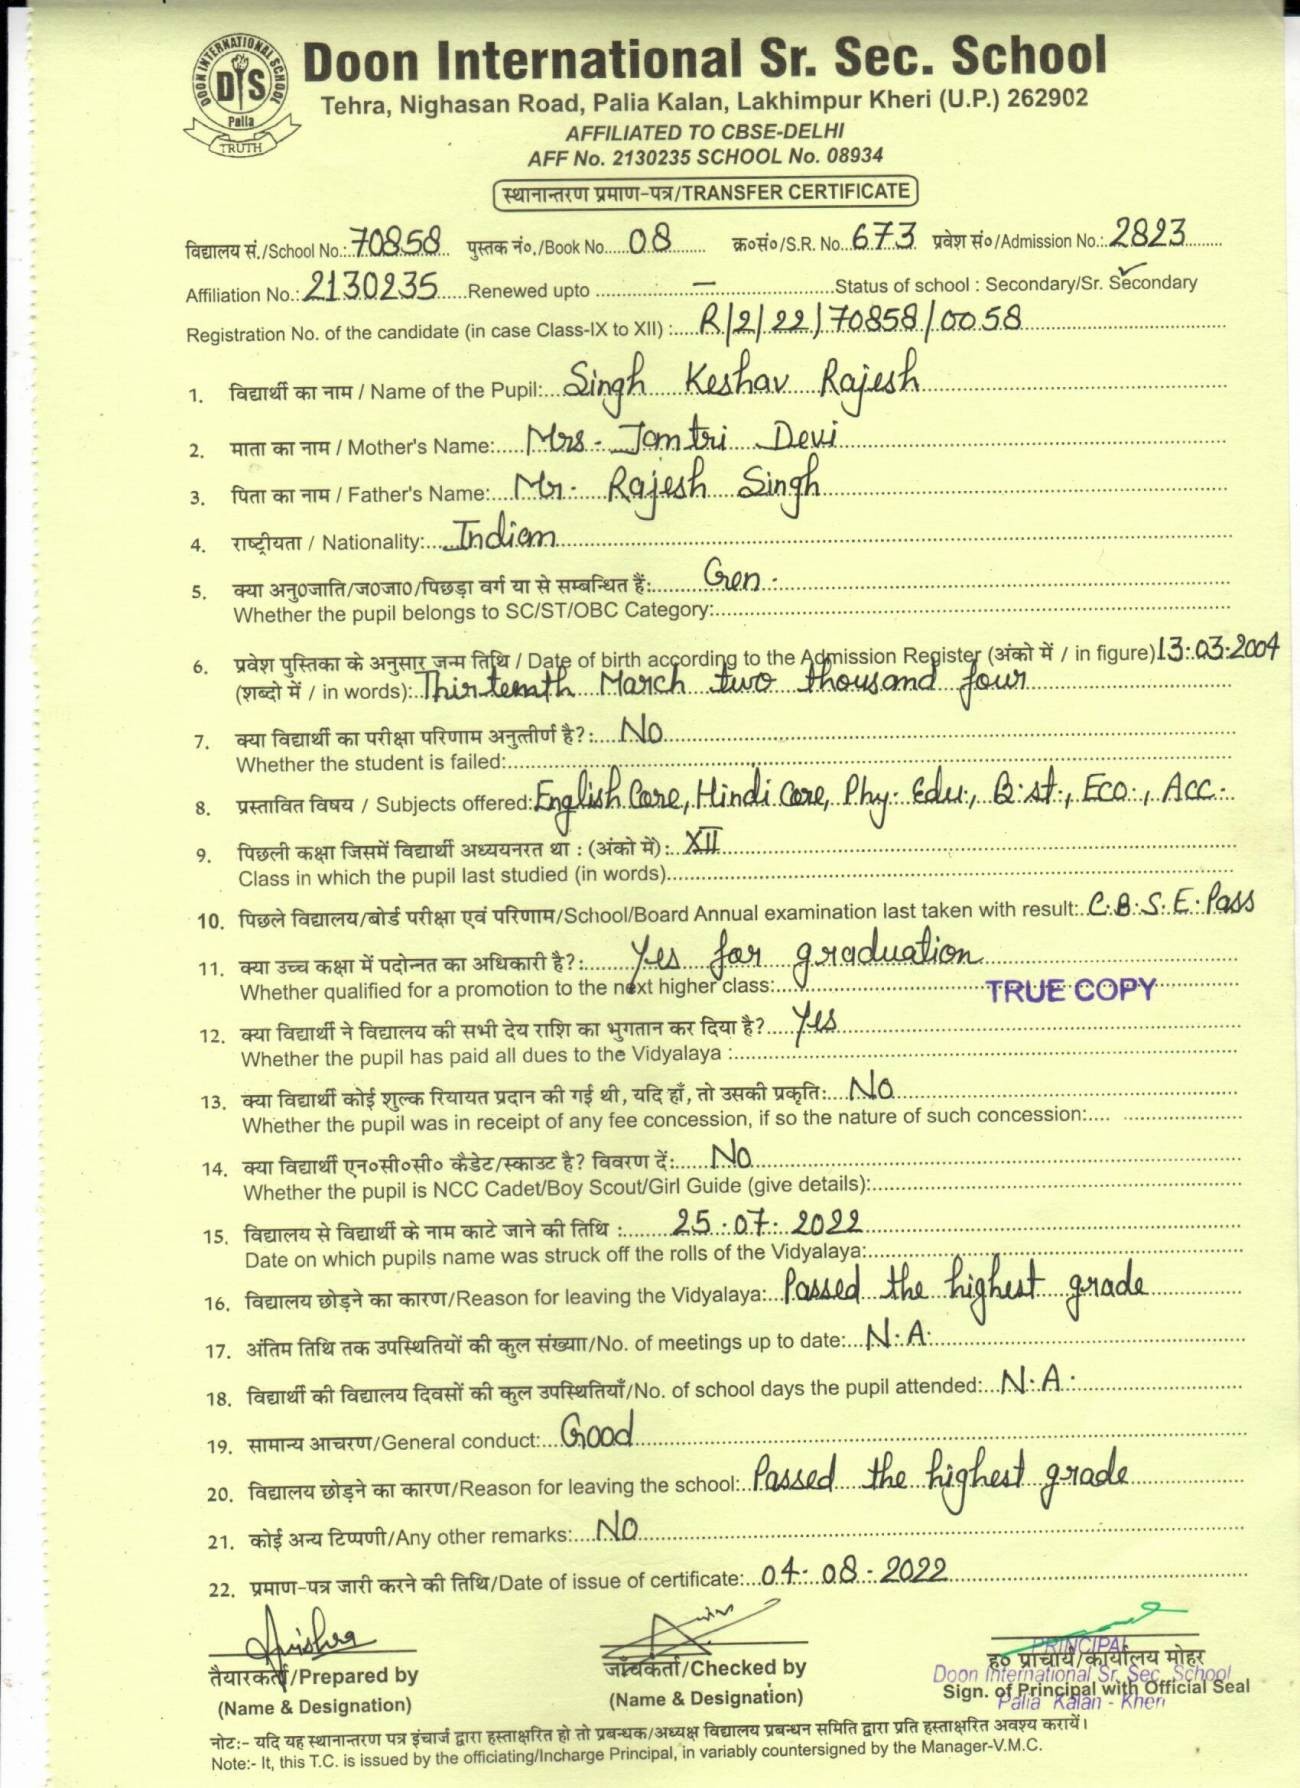 DOON INTERNATIONAL SCHOOL
DIS
Palia
TRUTH
Doon International Sr. Sec. School
Tehra, Nighasan Road, Palia Kalan, Lakhimpur Kheri (U.P.) 262902
AFFILIATED TO CBSE-DELHI
AFF No. 2130235 SCHOOL No. 08934
स्थानान्तरण प्रमाण-पत्र/TRANSFER CERTIFICATE
विद्यालय सं./School No.: 70858 पुस्तक नं०./Book No. 08 क्र०सं०/S.R. No. 673 प्रवेश सं०/Admission No.: 2823
Affiliation No.: 2130235 Renewed upto — Status of school : Secondary/Sr. Secondary
Registration No. of the candidate (in case Class-IX to XII) : R/2/22/70858/0058
1. विद्यार्थी का नाम / Name of the Pupil: Singh Keshav Rajesh
2. माता का नाम / Mother's Name: Mrs. Jamtri Devi
3. पिता का नाम / Father's Name: Mr. Rajesh Singh
4. राष्ट्रीयता / Nationality: Indian
5. क्या अनु0जाति/ज0जा0/पिछड़ा वर्ग या से सम्बन्धित हैं: Gen.
Whether the pupil belongs to SC/ST/OBC Category:
6. प्रवेश पुस्तिका के अनुसार जन्म तिथि / Date of birth according to the Admission Register (अंको में / in figure) 13.03.2004
(शब्दो में / in words): Thirteenth March two thousand four
7. क्या विद्यार्थी का परीक्षा परिणाम अनुत्तीर्ण है?: No
Whether the student is failed:
8. प्रस्तावित विषय / Subjects offered: English Core, Hindi Core, Phy. Edu., B.st., Eco., Acc.
9. पिछली कक्षा जिसमें विद्यार्थी अध्ययनरत था : (अंको में) : XII
Class in which the pupil last studied (in words)
10. पिछले विद्यालय/बोर्ड परीक्षा एवं परिणाम/School/Board Annual examination last taken with result: C.B.S.E. Pass
11. क्या उच्च कक्षा में पदोन्नत का अधिकारी है?: Yes for graduation
Whether qualified for a promotion to the next higher class:
TRUE COPY
12. क्या विद्यार्थी ने विद्यालय की सभी देय राशि का भुगतान कर दिया है? Yes
Whether the pupil has paid all dues to the Vidyalaya :
13. क्या विद्यार्थी कोई शुल्क रियायत प्रदान की गई थी, यदि हाँ, तो उसकी प्रकृति: No
Whether the pupil was in receipt of any fee concession, if so the nature of such concession:
14. क्या विद्यार्थी एन०सी०सी० कैडेट/स्काउट है? विवरण दें: No
Whether the pupil is NCC Cadet/Boy Scout/Girl Guide (give details):
15. विद्यालय से विद्यार्थी के नाम काटे जाने की तिथि : 25.07.2022
Date on which pupils name was struck off the rolls of the Vidyalaya:
16. विद्यालय छोड़ने का कारण/Reason for leaving the Vidyalaya: Passed the highest grade
17. अंतिम तिथि तक उपस्थितियों की कुल संख्या/No. of meetings up to date: N.A.
18. विद्यार्थी की विद्यालय दिवसों की कुल उपस्थितियाँ/No. of school days the pupil attended: N.A.
19. सामान्य आचरण/General conduct: Good
20. विद्यालय छोड़ने का कारण/Reason for leaving the school: Passed the highest grade
21. कोई अन्य टिप्पणी/Any other remarks: No
22. प्रमाण-पत्र जारी करने की तिथि/Date of issue of certificate: 04.08.2022
PRINCIPAL
तैयारकर्ता/Prepared by जांचकर्ता/Checked by ह० प्राचार्य/कार्यालय मोहर
Doon International Sr. Sec. School
(Name & Designation) (Name & Designation) Sign. of Principal with Official Seal
Palia Kalan - Kheri
नोट:- यदि यह स्थानान्तरण पत्र इंचार्ज द्वारा हस्ताक्षरित हो तो प्रबन्धक/अध्यक्ष विद्यालय प्रबन्धन समिति द्वारा प्रति हस्ताक्षरित अवश्य करायें।
Note:- It, this T.C. is issued by the officiating/Incharge Principal, in variably countersigned by the Manager-V.M.C.